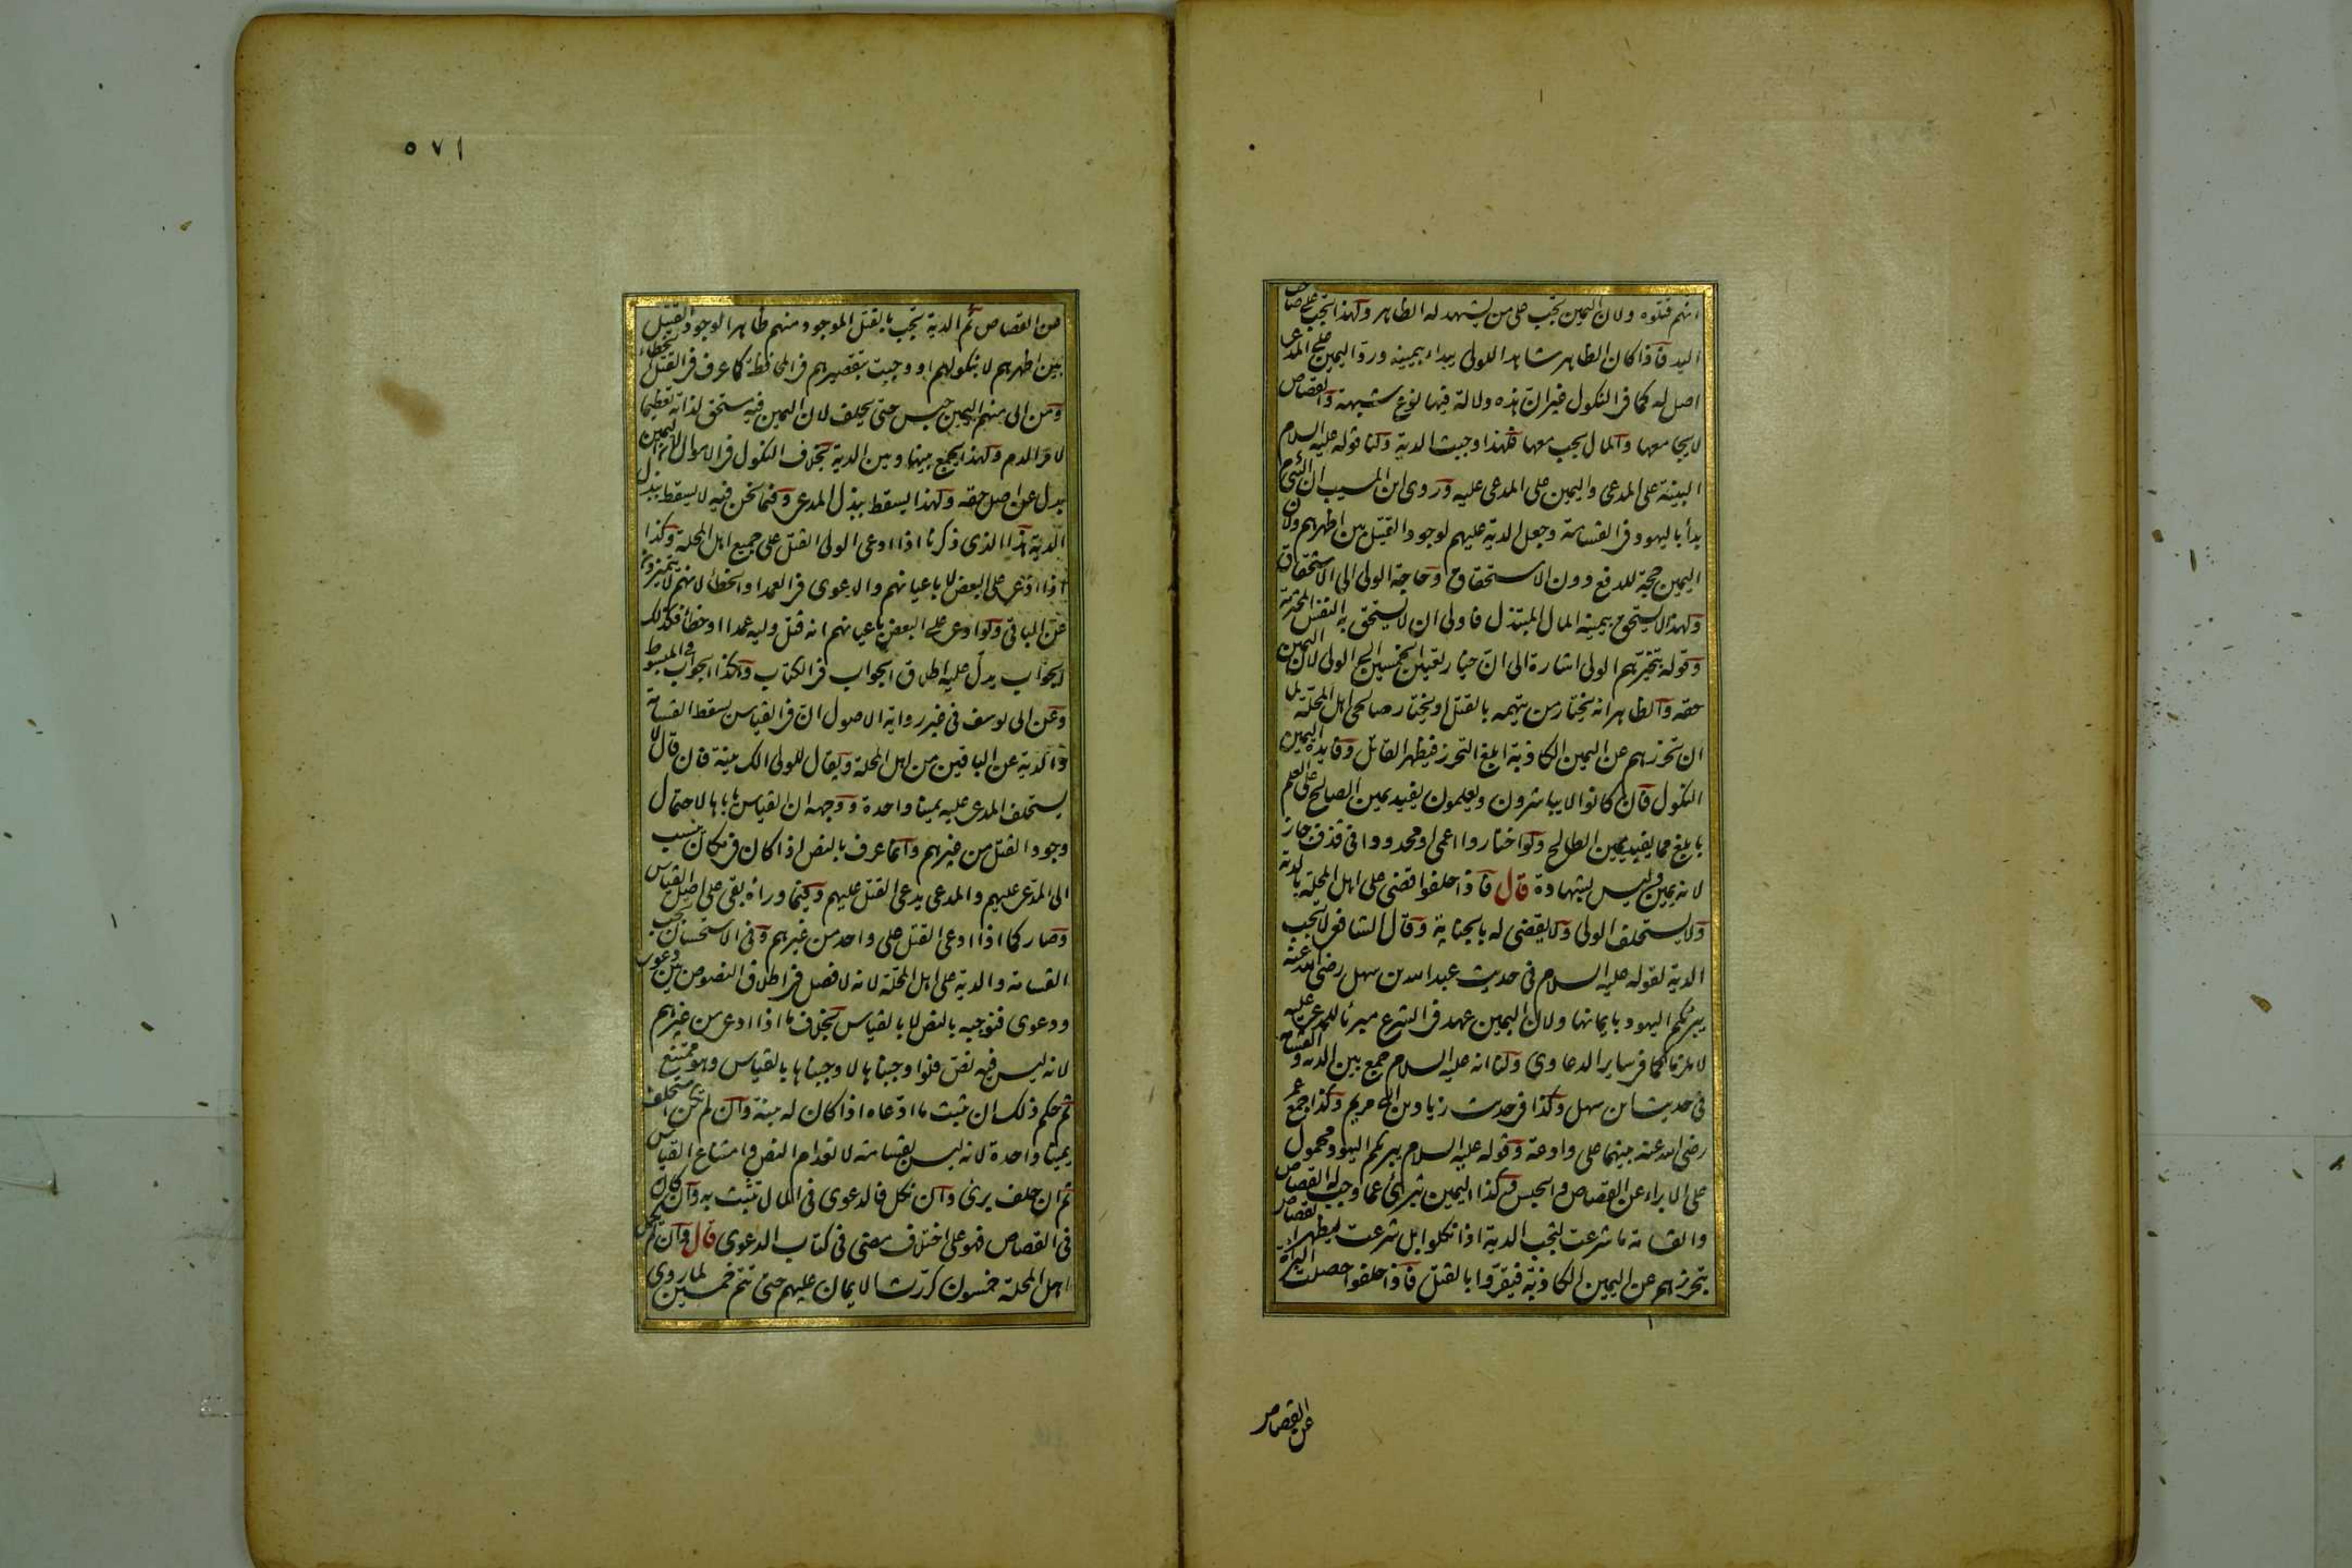 انهم قتلوه ولان اليمين تجب على من يشهد له الظاهر ولهذا تجب على صاحب
اليد فاذا كان الظاهر شاهدا للولى يبداء بيمينه ورد اليمين على المدعى
اصل له كما فى النكول غير ان هذه دلالة فيها نوع شبهة والقصاص
لا يجا معها والمال يجب معها فلهذا وجبت الدية ولنا قوله عليه السلام
البينة على المدعى واليمين على المدعى عليه وروى ابن المسيب ان النبى
بدأ باليهود فى القسامة وجعل الدية عليهم لوجود القتيل بين اظهرهم ولان
اليمين حجة للدفع دون الاستحقاق وحاجة الولى الى الاستحقاق
ولهذا لا يستحق بيمينه المال المبتذل فاولى ان لا يستحق به النفس المحترمة
وقوله يتخيرهم الولى اشارة الى ان خيار تعيين الخمسين الى الولى لان اليمين
حقه والظاهر انه يختار من يتهمه بالقتل او يختار صالحى اهل المحلة لما
ان تحرزهم عن اليمين الكاذبة ابلغ التحرز فيظهر القاتل وفايدة اليمين
النكول فان كانوا لا يباشرون ويعلمون يفيد يمين الصالح على العلم
بابلغ مما يفيد يمين الطالح ولو اختاروا اعمى او محدودا فى قذف جاز
لانه يمين وليس بشهادة قال فاذا حلفوا قضى على اهل المحلة بالدية
ولا يستحلف الولى ولا يقضى له بالجناية وقال الشافعى لا تجب
الدية لقوله عليه السلام فى حديث عبد الله بن سهل رضى الله عنه
يبرئكم اليهود بايمانها ولان اليمين عهد فى الشرع مبرئا للمدعى عليه
لا ملزما كما فى ساير الدعاوى ولنا انه عليه السلام جمع بين الدية والقسامة
فى حديث ابن سهل وكذا فى حديث زياد بن ابى مريم وكذا جمع عمر
رضى الله عنه بينهما على وادعة وقوله عليه السلام يبرئكم اليهود محمول
على الابراء عن القصاص والحبس وكذا اليمين تبرئ عما وجب له القصاص
والقسامة ما شرعت لتجب الدية اذا نكلوا بل شرعت ليظهر القصاص
بتحرزهم عن اليمين الكاذبة فيقروا بالقتل فاذا حلفوا حصلت البراءة
عن القصاص
٥٧١
عن القصاص ثم الدية تجب بالقتل الموجود منهم ظاهرا لوجود القتيل
بين اظهرهم لا بنكولهم او وجبت بتقصيرهم فى المحافظة كما عرف فى القتل الخطاء
ومن ابى منهم اليمين حبس حتى يحلف لان اليمين فيه مستحق لذاته تعظيما
لامر الدم ولهذا يجمع بينها وبين الدية بخلاف النكول فى الاموال لان اليمين
بدل عن اصل حقه ولهذا يسقط ببذل المدعى وفيما نحن فيه لا يسقط ببذل
الدية هذا الذى ذكرنا اذا ادعى الولى القتل على جميع اهل المحلة وكذا
اذا ادعى على البعض لا باعيانهم والدعوى فى العمد او الخطأ لانهم لا يتميزون
عن الباقى ولو ادعى على البعض باعيانهم انه قتل وليه عمدا او خطأ فكذلك
الجواب يدل عليه اطلاق الجواب فى الكتاب وهكذا الجواب فى المبسوط
وعن ابى يوسف فى غير رواية الاصول ان فى القياس يسقط القسامة
والدية عن الباقين من اهل المحلة ويقال للولى الك بينة فان قال لا
يستحلف المدعى عليه يمينا واحدة ووجهه ان القياس ياباها لاحتمال
وجود القتل من غيرهم وانما عرف بالنص اذا كان فى مكان ينسب
الى المدعى عليهم والمدعى يدعى القتل عليهم وفيما وراه بقى على اصل القياس
وصار كما اذا ادعى القتل على واحد من غيرهم وفى الاستحسان تجب
القسامة والدية على اهل المحلة لانه لا فصل فى اطلاق النصوص بين دعوى
ودعوى فنوجبه بالنص لا بالقياس بخلاف ما اذا ادعى من غيرهم
لانه ليس فيه نص فلو اوجبناها لاوجبناها بالقياس وهو ممتنع
ثم حكم ذلك ان يثبت ما ادعاه اذا كان له بينة وان لم تكن استحلف
يمينا واحدة لانه ليس بقسامة لانعدام النص وامتناع القياس
ثم ان حلف برئ وان نكل فالدعوى فى المال يثبت به وان كان
فى القصاص فهو على اختلاف مضى فى كتاب الدعوى قال وان لم يكمل
اهل المحلة خمسون كررت الايمان عليهم حتى تتم خمسين لما روى